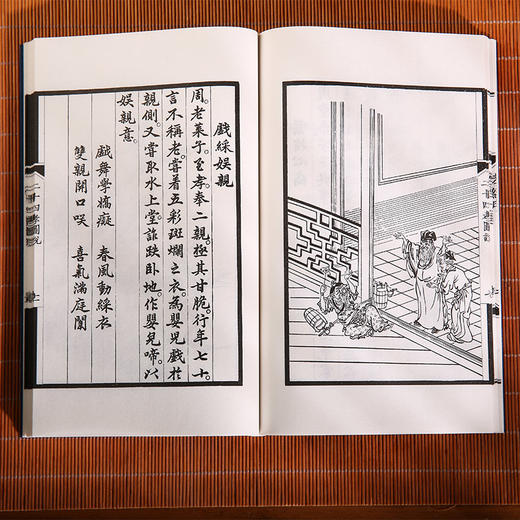 戲綵娱親
周。老萊子。至孝。奉二親。極其甘脆。行年七十。
言不稱老。嘗着五彩斑斕之衣。為嬰児戲於
親側。又嘗取水上堂。詐跌卧地。作嬰兒啼。以
娱親意。
戲舞學嬌癡 春風動綵衣
雙親開口笑 喜氣滿庭闈
二十四孝圖說